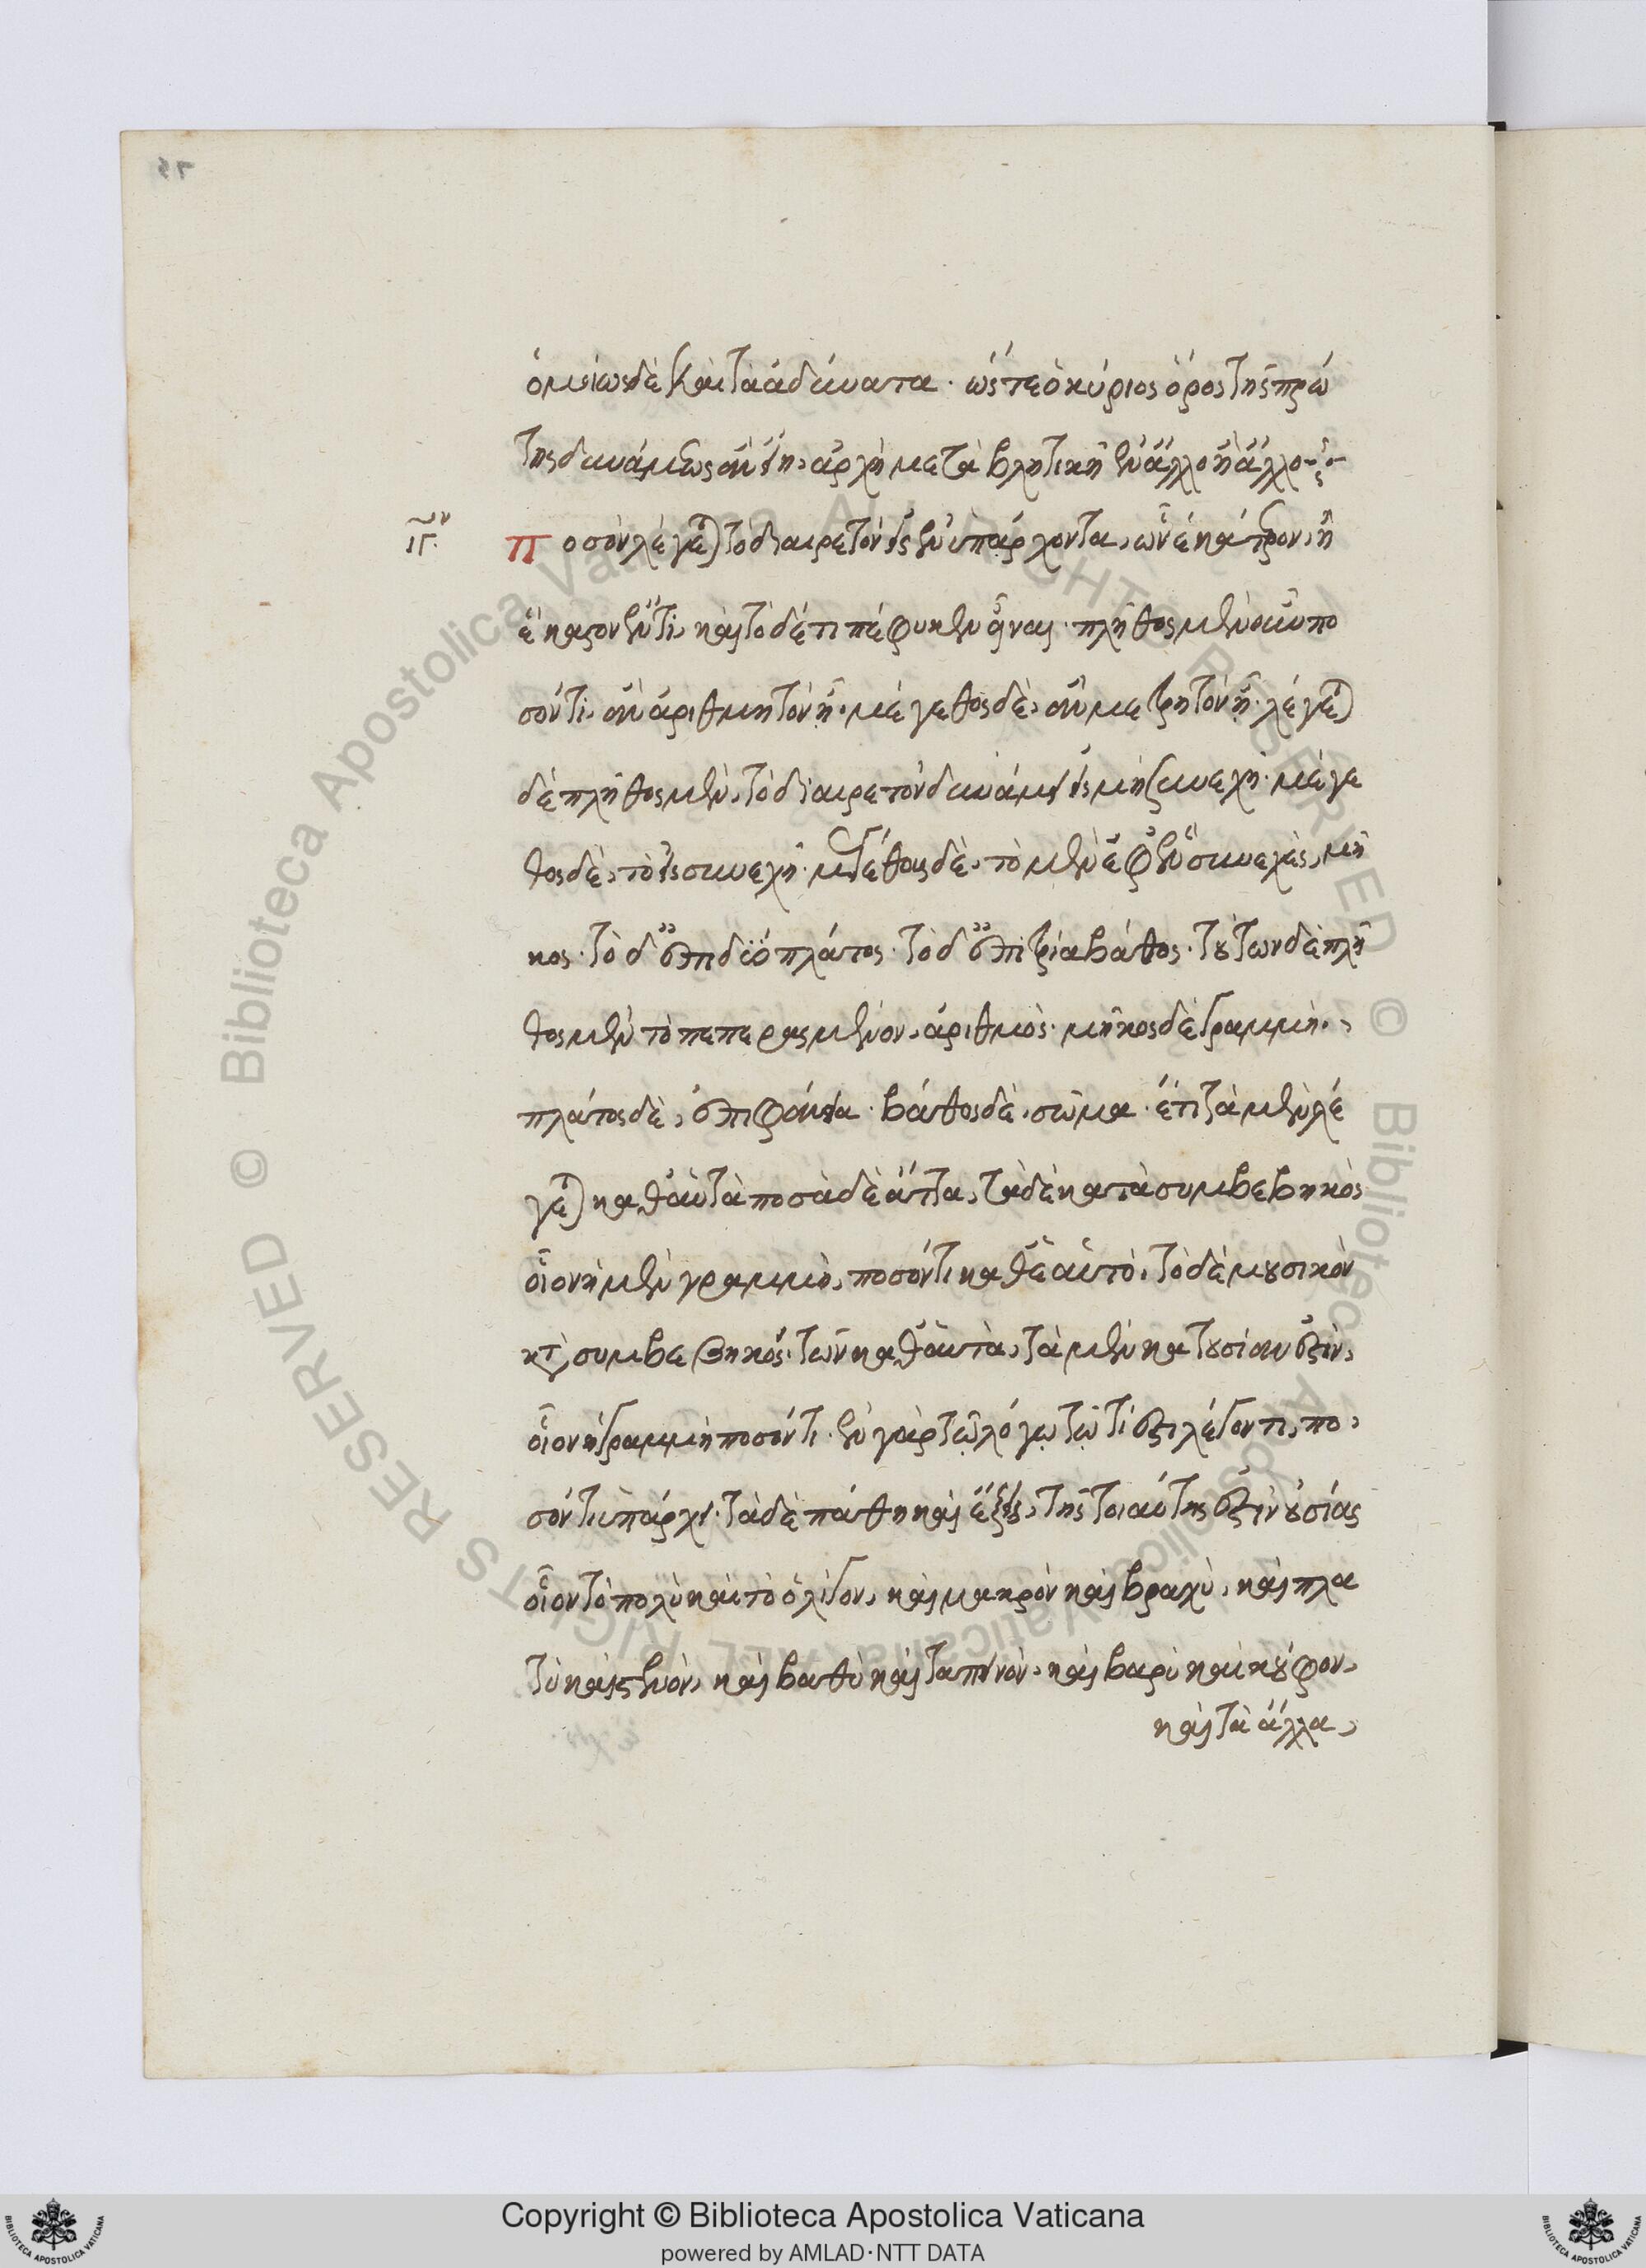 ὁμοίως δὲ καὶ τὰ ἀδύνατα · ὥστε ὁ κύριος ὅρος τῆς πρώ
της δυνάμεως ἂν εἴη, ἀρχὴ μεταβλητικὴ ἐν ἄλλο ἢ ἄλλο
ιγ^ον
Ποσὸν λέγεται τὸ διαιρετὸν εἰς ἐνυπάρχοντα, ὧν ἑκάτερον, ἢ
ἕκαστον ἕν τι, καὶ τὸ δέ τι πέφυκεν εἶναι · πλῆθος μὲν οὖν πο
σόν τι, ἂν ἀριθμητὸν ᾖ · μέγεθος δὲ, ἂν μετρητὸν ᾖ · λέγεται
δὲ πλῆθος μὲν, τὸ διαιρετὸν δυνάμει εἰς μὴ συνεχῆ · μέγε
θος δὲ, τὸ εἰς συνεχῆ · μεγέθους δὲ, τὸ μὲν ἐφ' ἓν συνεχὲς, μῆ
κος · τὸ δ' ἐπὶ δύο πλάτος · τὸ δ' ἐπὶ τρία βάθος · τούτων δὲ πλῆ
θος μὲν τὸ πεπερασμένον, ἀριθμὸς · μῆκος δὲ γραμμὴ ·
πλάτος δὲ, ἐπιφάνεια · βάθος δὲ, σῶμα · ἔτι τὰ μὲν λέ
γεται καθ' αὑτὰ ποσὰ δὲ ἄττα, τὰ δὲ κατὰ συμβεβηκὸς
οἷον ἡ μὲν γραμμὸ, ποσόν τι καθ' ἑαυτὸ, τὸ δὲ μουσικὸν
κατὰ συμβεβηκός · τῶν καθ' αὑτὰ, τὰ μὲν κατ' οὐσίαν ἐστὶν,
οἷον ἡ γραμμὴ ποσόν τι · ἐν γὰρ τῷ λόγῳ τῷ τί ἐστι λέγοντι, πο
σόν τι ὑπάρχει · τὰ δὲ πάθη καὶ ἕξεις, τῆς τοιαύτης ἐστὶν οὐσίας
οἷον τὸ πολὺ καὶ τὸ ὀλίγον, καὶ μακρὸν καὶ βραχὺ, καὶ πλα
τὺ καὶ στενὸν, καὶ βαθὺ καὶ ταπεινὸν, καὶ βαρὺ καὶ κοῦφον,
καὶ τὰ ἄλλα,
© Biblioteca Apostolica Vaticana ALL RIGHTS RESERVED © Biblioteca Apostolica Vaticana ALL RIGHTS RESERVED
Copyright © Biblioteca Apostolica Vaticana
powered by AMLAD·NTT DATA
BIBLIOTECA APOSTOLICA VATICANA
BIBLIOTECA APOSTOLICA VATICANA